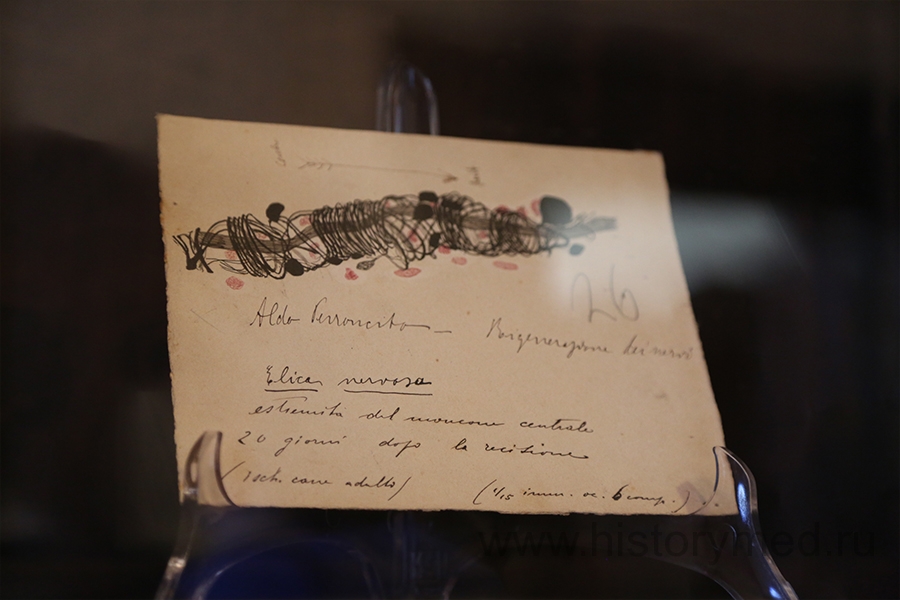 26
Aldo Perroncito — Rigenerazione dei nervi
Elica nervosa
estremità del moncone centrale
20 giorni dopo la recisione
(isch. cane adulto) (1/15 imm. oc. 6 comp.)
www.historymed.ru